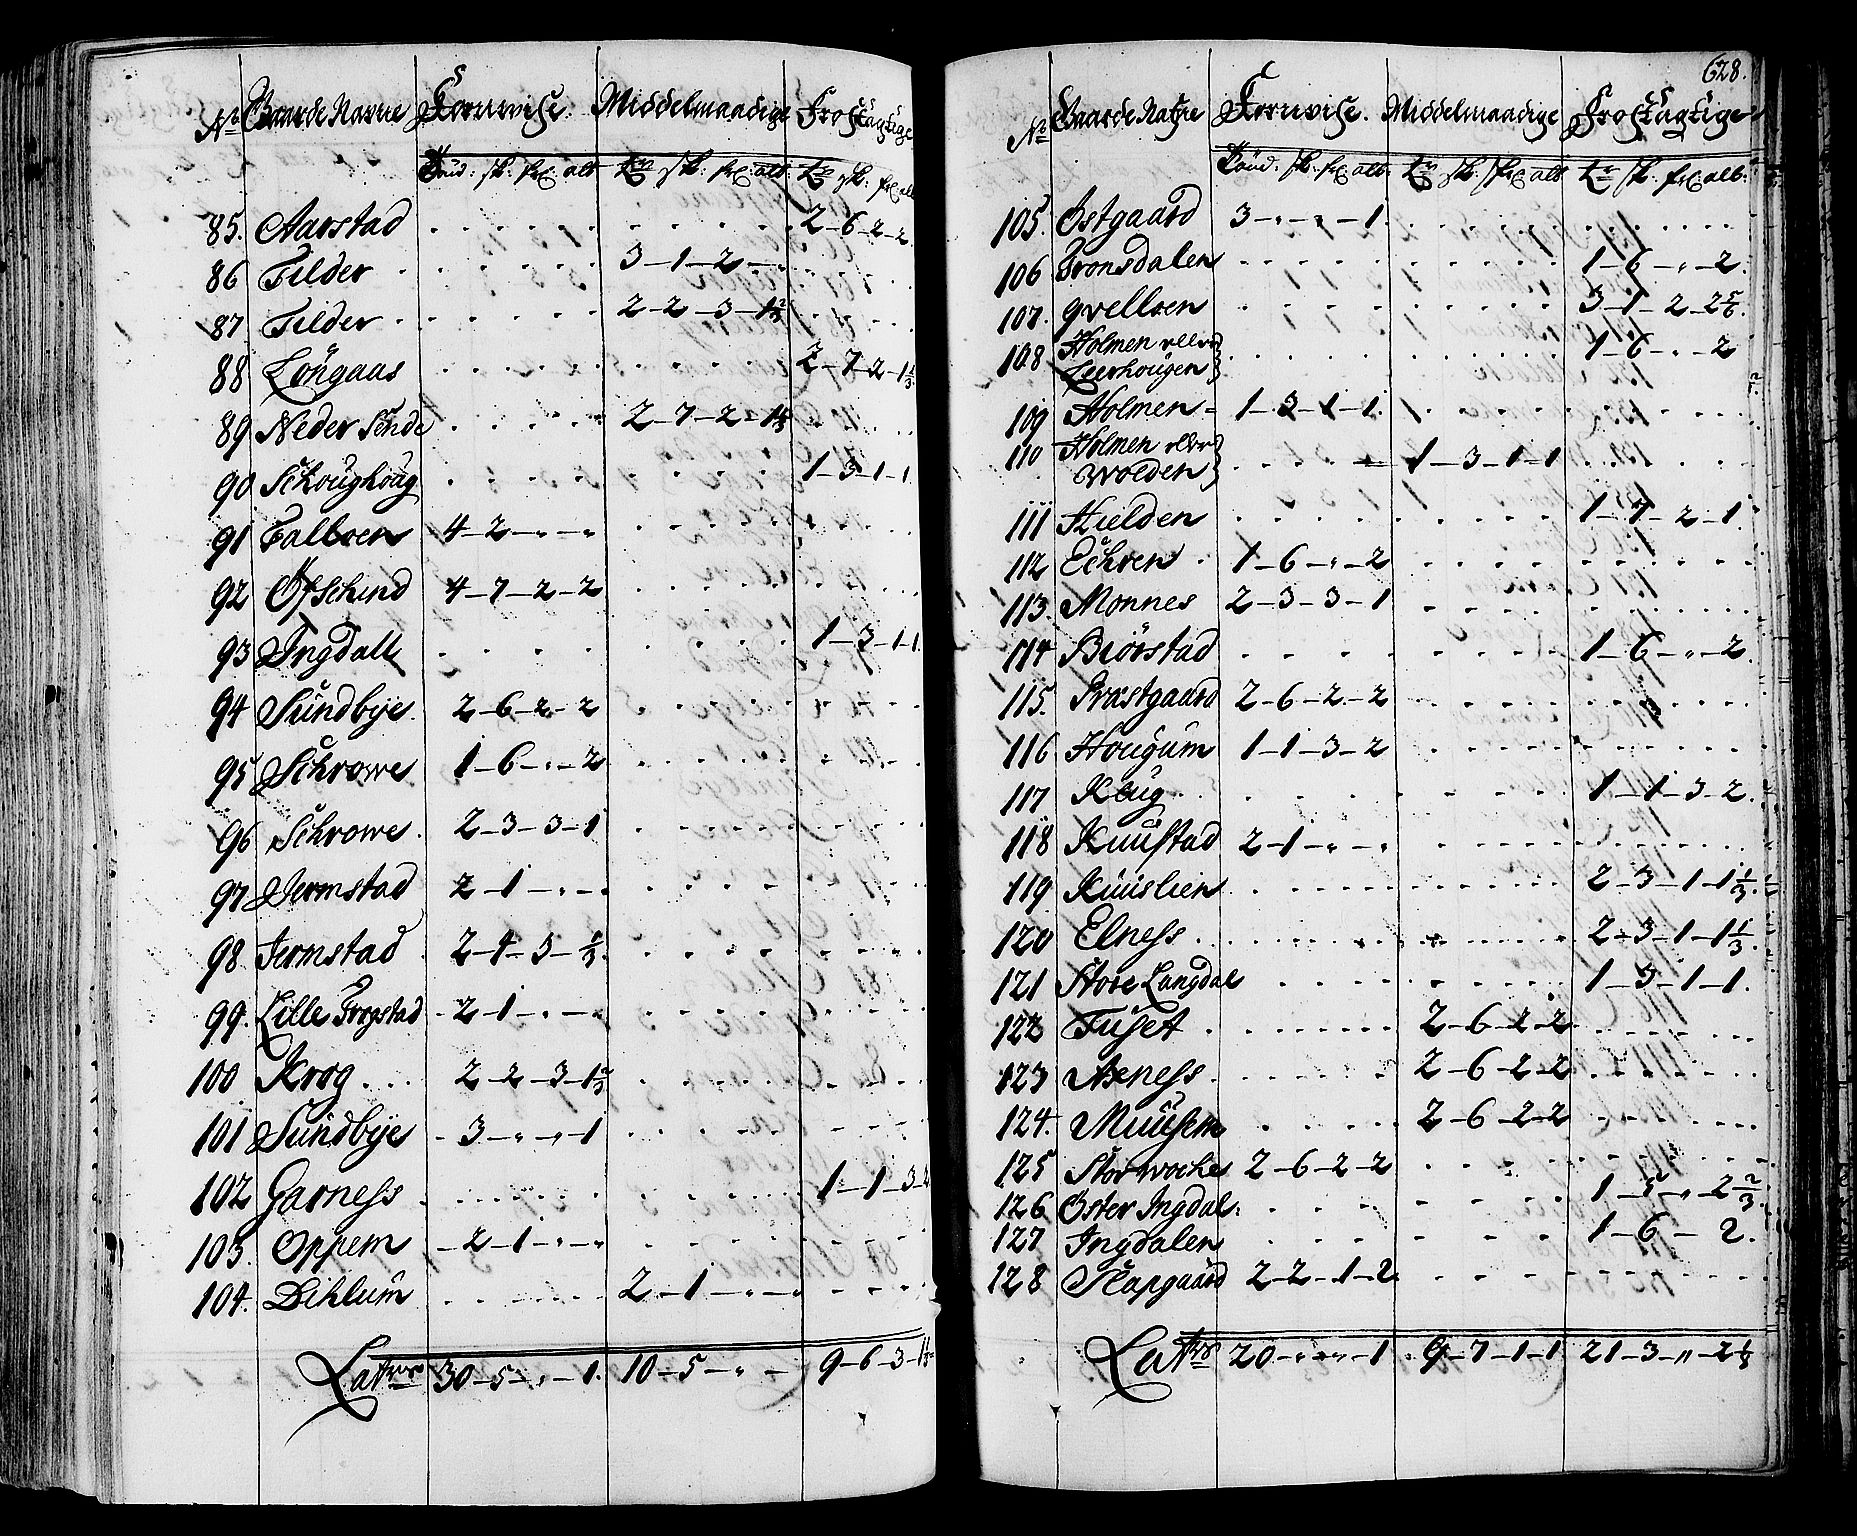 No Gaarde Nafne Kornvise. Middelmaadige Frostagtige
Tönd: sk: frc: alb tn sk: frc: alb tn sk: frc alb
85. Aarstad 2-6-2-2
86 Tilder 3-1-2-
87 Tilder 2-2-3-1 2/3
88 Löngaas 2-7-2-1 1/3
89 Neder Sende 2-7-2-1 1/3
90 Schoughoug 1-3-1-1
91 Falloen 4-2-"-"
92 Ofschind 4-7-2-2
93 Ingdall 1-3-1-1
94 Sundbye 2-6-2-2
95 Schrowe 1-6-"-2
96 Schrowe 2-3-3-1
97 Jermstad 2-1-"-"
98 Jermstad 2-4-3-1/3
99. Lille Frogstad 2-1-"-"
100 Krog 2-2-3-1 2/3
101 Sundbye 3-"-"-1
102 Garness 1-1-3-2
103. Oppem 2-1-"-"
104. Dihlum 2-1-"-"
Latus 30-5-"-1. 10-5-"- 9-6-3-1 1/3
628.
No Gaarde Nafne Kornvise. Middelmaadige Frostagtige
Tönd: sk: frc: alb: tn sk: frc alb tn sk: frc: alb:
105. Ostgaard 3-"-"-1
106 Fronsdalen 1-6-"-2
107. qvelloen 3-1-2-2 2/6
108 Holmen eller
Leerhougen 1-6-"-2
109 Holmen 1-3-1-1
110 Holmen eller
Wolden 1-3-1-1
111 Hielden 1-7-2-1
112 Echren 1-6-"-2
113. Monnes 2-3-3-1
114 Biörstad 1-6-"-2
115. Præstgaard 2-6-2-2
116 Hougum 1-1-3-2
117 Klug 1-1-3-2
118 Kuustad 2-1-"-"
119 Kuuslien 2-3-1-1 1/3
120 Elness 2-3-1-1 1/3
121 Store Langdal 1-3-1-1.
122 Tuset 2-6-2-2
123 Axness 2-6-2-2
124. Muusem 2-6-2-2
125 Storwoche 2-6-2-2
126 Oster Ingdal: 1-5-"-2 2/3
127 Ingdalen 1-6-2.
128 Slapgaard 2-2-1-2
Latus 20-"-"-1 9-7-1-1 21-3-"-2 1/3